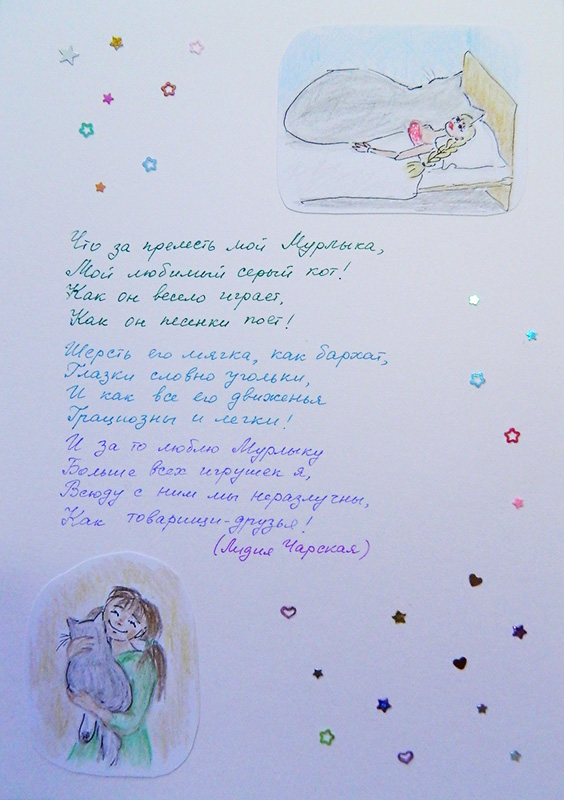 Что за прелесть мой Мурлыка,
Мой любимый серый кот!
Как он весело играет,
Как он песенки поет!
Шерсть его мягка, как бархат,
Глазки словно угольки,
И как все его движенья
Грациозны и легки!
И за то люблю Мурлыку
Больше всех игрушек я,
Всюду с ним мы неразлучны,
Как товарищи-друзья!
(Лидия Чарская)